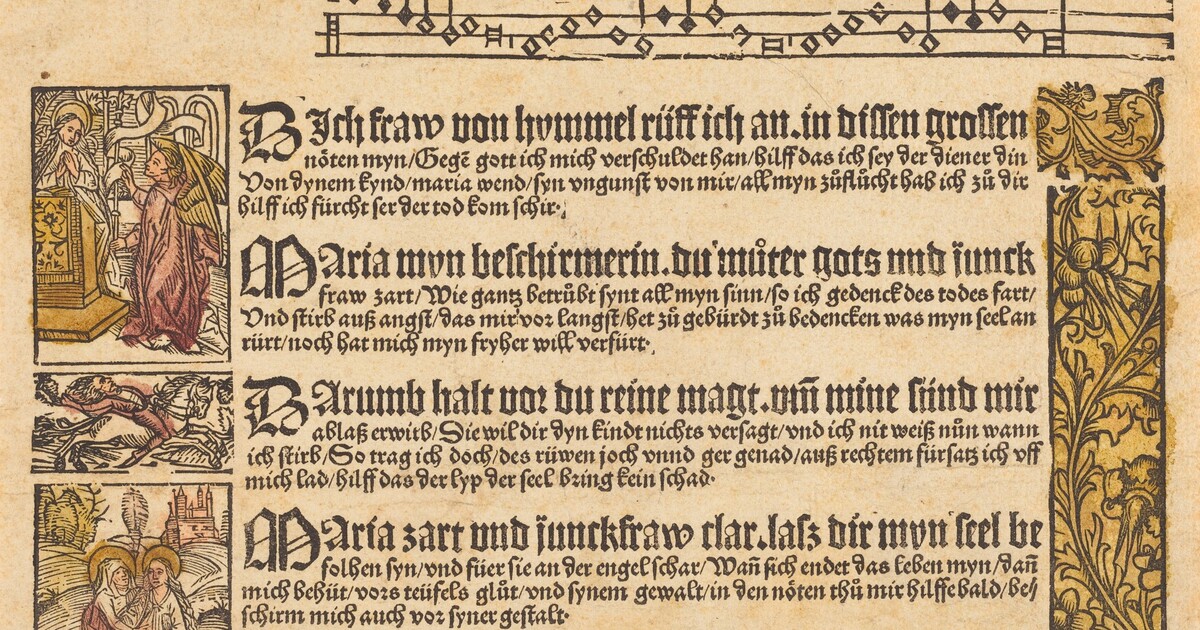 DIch fraw von hymmel rüff ich an. in dissen grossen
nöten myn/Gegē gott ich mich verschuldet han/hilff das ich sey der diener din
Von dynem kynd/maria wend/syn vngunst von mir/all myn zůflůcht hab ich zů dir
hilff ich fürcht ser der tod kom schir.
MAria myn beschirmerin. du můter gots vnd junck
fraw zart/Wie gantz betrůbt synt all myn sinn/so ich gedenck des todes fart/
Vnd stirb auß angst/das mir vor langst/het zů gebürdt zů bedencken was myn seel an
rürt/noch hat mich myn fryher will verfürt.
DArumb halt vor du reine magt. vm̄ mine sünd mir
ablaß erwirb/Sie wil dir dyn kindt nichts versagt/vnd ich nit weiß nůn wann
ich stirb/So trag ich doch/des rüwen joch vnnd ger genad/auß rechtem fürsatz ich vff
mich lad/hilff das der lyp der seel bring kein schad.
MAria zart vnd junckfraw clar. lasz dir myn seel be
folhen syn/vnd füer sie an der engel schar/Wañ sich endet das leben myn/dañ
mich behüt/vors teüfels glůt/vnd synem gewalt/in den nöten thů mir hilffe bald/be/
schirm mich auch vor syner gestalt.